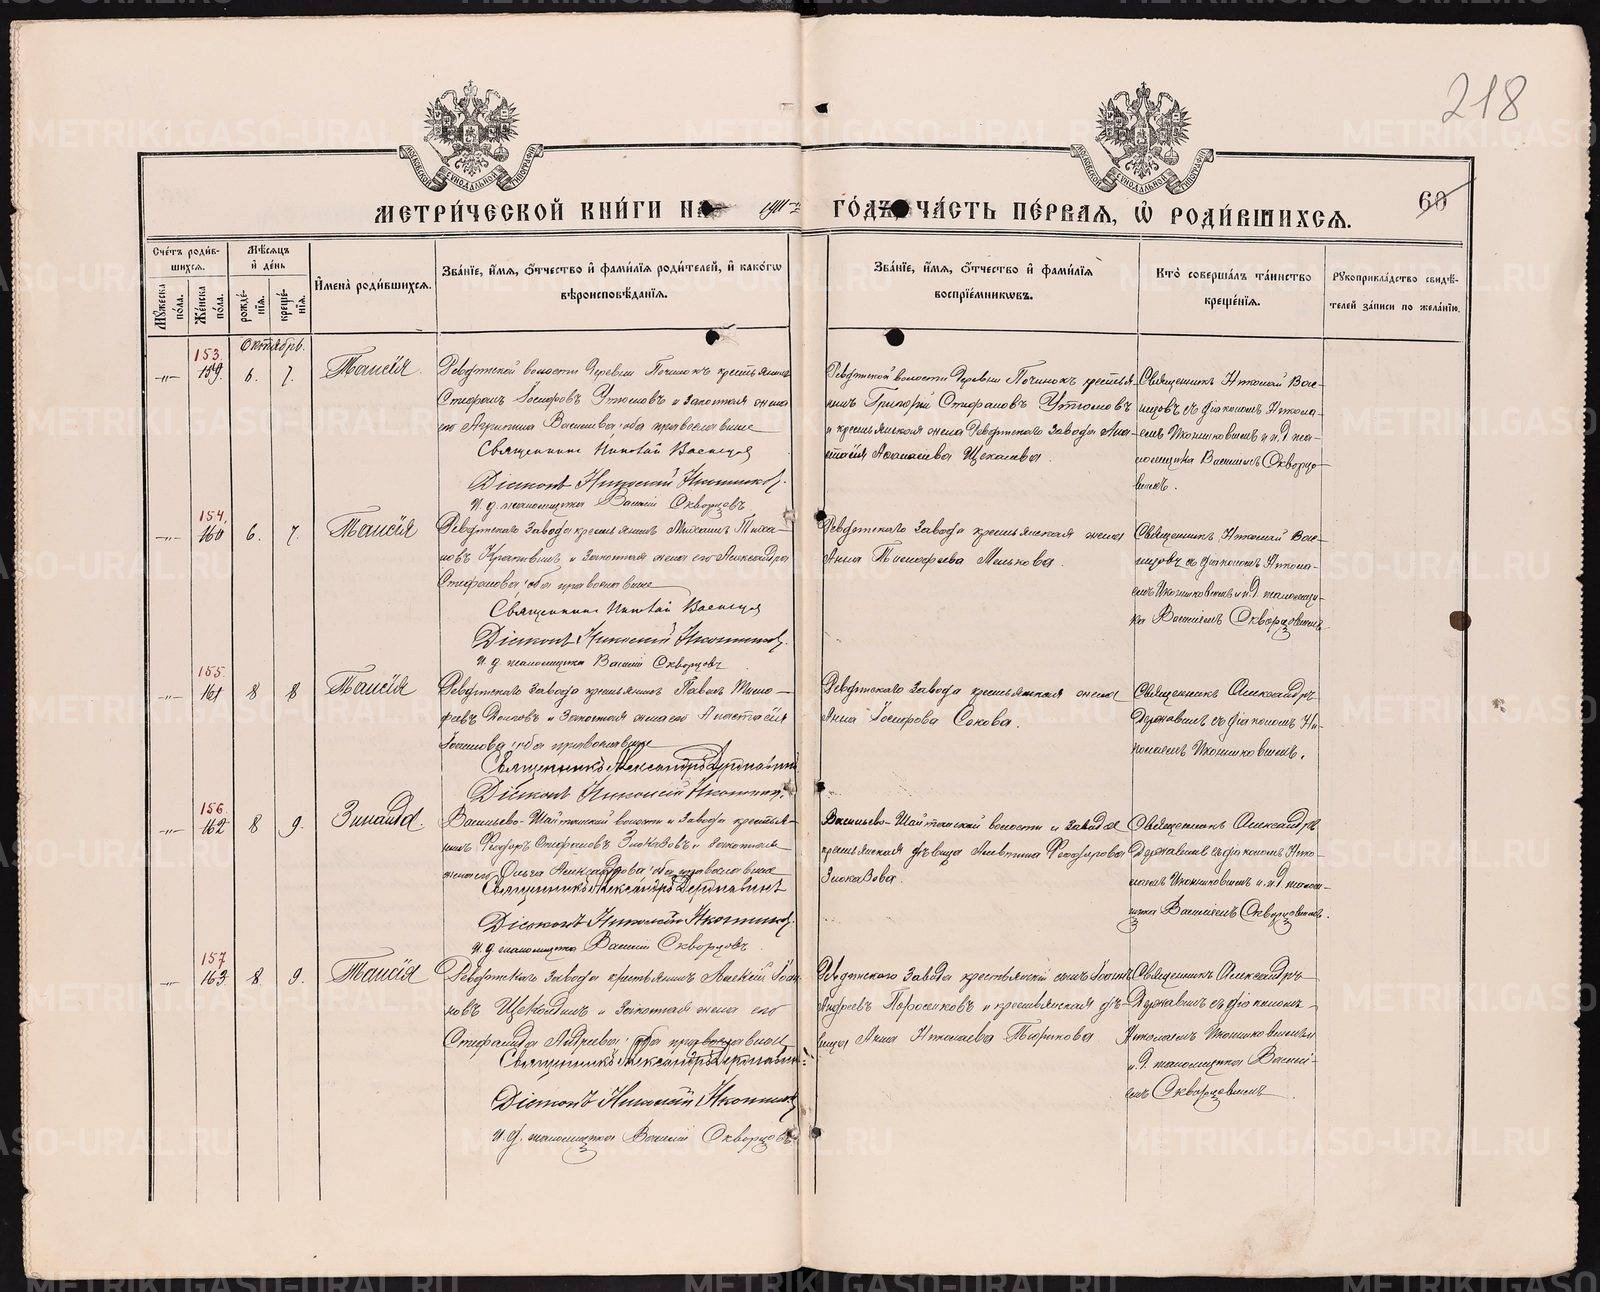 218
МЕТРИ́ЧЕСКОЙ КНИ́ГИ НА 1911-й ГО́ДЪ, ЧА́СТЬ ПЕ́РВАѦ, Ѡ҆ РОДИ́ВШИХСѦ.
60
Сче́тъ роди́в-
шихсѧ.
Мꙋ́жеска по́ла.
Же́нска по́ла.
Мѣ́сѧцъ
и҆ де́нь
рожде́-
нїѧ.
креще́-
нїѧ.
И҆мена̀ роди́вшихсѧ.
Зва́нїе, и҆́мѧ, ѻ҆́тчество и҆ фами́лїѧ роди́телей, и҆ како́гѡ
вѣроисповѣ́данїѧ.
Зва́нїе, и҆́мѧ, ѻ҆́тчество и҆ фами́лїѧ
воспрїе́мникѡвъ.
Кто̀ соверша́лъ та́инство
креще́нїѧ.
Рꙋкоприкла́дство свидѣ́-
телей за́писи по жела́нїю.
Октябрь.
153.
159. 6. 7. Таисія.
Ревдинской волости Деревни Починокъ крестьянинъ
Стефанъ Іосифовъ Утюмовъ и законная жена
его Агрипина Васильева, оба православные
Священникъ Николай Васнецов
Діаконъ Николай Иконников.
И. д. псаломщика Василій Скворцовъ
Ревдинской волости Деревни Починокъ крестья-
нинъ Григорій Стефановъ Утюмовъ
и крестьянская жена Ревдинскаго Завода Ана-
стасія Афанасьева Щекалева.
Священникъ Николай Вас-
нецовъ съ діакономъ Никола-
емъ Иконниковымъ и и. д. пса-
ломщика Василіемъ Скворцо-
вымъ.
154.
160 6. 7. Таисія
Ревдинскаго Завода крестьянинъ Михаилъ Тиха-
Стефанова, оба православные
Священникъ Николай Васнецов
Діаконъ Николай Иконников.
и. д. псаломщика Василій Скворцовъ
Ревдинскаго Завода крестьянская жена
Анна Тимофеева Мелькова.
Священникъ Николай Вас-
нецовъ съ діакономъ Никола-
емъ Иконниковымъ и и. д. псаломщи-
ка Василіемъ Скворцовымъ
155.
161 8 8 Таисія
Ревдинскаго Завода крестьянинъ Павелъ Тимо-
феевъ и Законная жена его Анастасія
оба православные
Священникъ Александръ Державинъ
Діаконъ Николай Иконников.
Ревдинскаго Завода крестьянская жена
Анна Іосифова Сокова.
Священникъ Александръ
Державинъ съ діакономъ Ни-
колаемъ Иконниковымъ.
156.
162 8 9. Зинаида.
Васильево-Шайтанской волости и Завода крестья-
нинъ Феодоръ Стефановъ Злоказовъ и законная
жена его Ольга Александрова, оба православные
Священникъ Александръ Державинъ
Діаконъ Николай Иконников.
И. д. псаломщика Василій Скворцовъ.
Васильево-Шайтанской волости и Завода
крестьянская дѣвица Алевтина Феодорова
Злоказова.
Священникъ Александръ
Державинъ съ діакономъ Нико-
лаемъ Иконниковымъ и и. д. псалом-
щика Василіемъ Скворцовымъ.
157
163 8. 9. Таисія
Ревдинскаго Завода крестьянинъ Алексій Іоан-
новъ и Законная жена его
Стефанида Андреева, оба православные
Священникъ Александръ Державинъ
Діаконъ Николай Иконников
И. д. псаломщика Василій Скворцовъ
Ревдинского Завода крестьянскій сынъ Іоаннъ
Андреевъ и крестьянская дѣ-
вица Анна Николаева
Священникъ Александръ
Державинъ съ діакономъ
Николаемъ Иконниковымъ и
и. д. псаломщика Васили-
емъ Скворцовымъ
METRIKI.GASO-URAL.RU